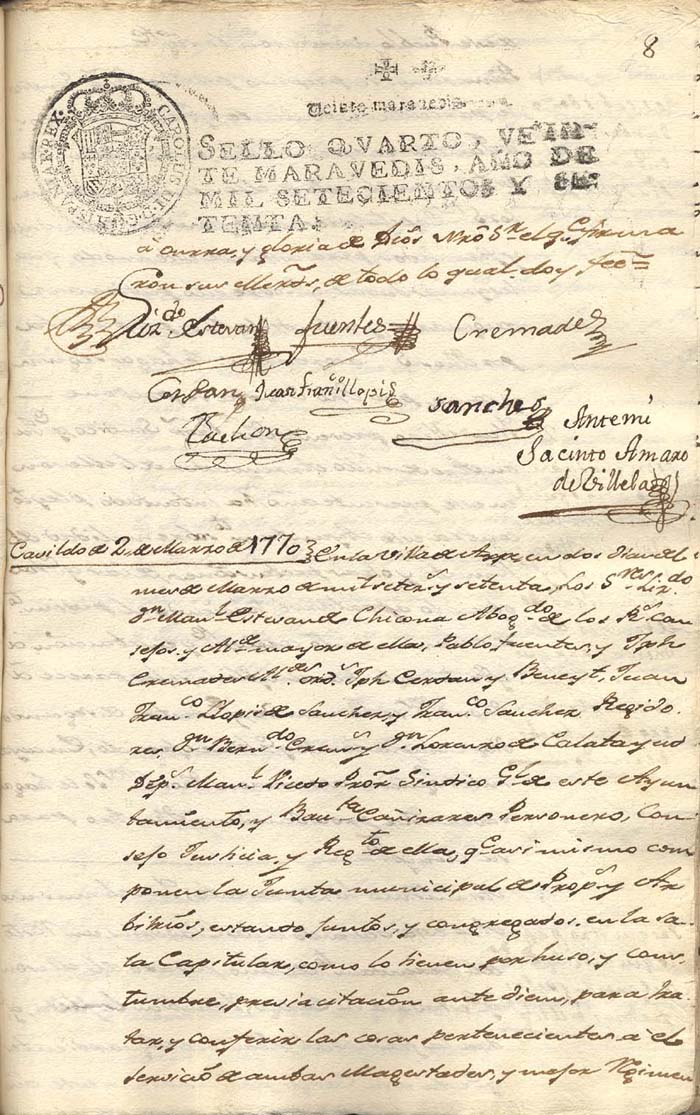 8
Veinte maravedis
CAROLUS III D.G. HISPANIAR. REX.
SELLO QVARTO, VEIN-
TE MARAVEDIS, AÑO DE
MIL SETECIENTOS Y SE-
TENTA.
y gloria de Dios Nro Sr el q.e firma
ron sus Merds, de todo lo qual, doy fee=
Liz.do Estevan fuentes Cremades
Cerdan Juan fran.co llopis
Sanches
Antemi
Jacinto Amaro
de Villela
Cavildo de 2 de Marzo de 1770 En la Villa de Aspe, en dos dias del
mes de Marzo de mil setez.s y setenta, Los S.res Liz.do
D.n Man.l Estevan de Chicona Abog.do de los R.s Con
sejos, y Al.de mayor de ella, Pablo fuentes, y Jph
Cremades Al.des ord.s Jph Cerdan y Beneyt, Juan
Fran.co Llopis de Sanchez, y Fran.co Sanchez Regido
res, D.n Bern.do y D.n Lorenzo de Calatayud
Dip.s Man.l Vicedo Pror Sindico G.l de este Ayun
tamiento, y Bau.ta Cañizares Personero, Con
sejo Justicia, y Reg.to de ella, q.e asimismo com
ponen la Junta municipal de Prop.s y Ar
bitrios, estando juntos, y congregados, en la sa
la Capitular, como lo tienen por huso, y cons
tumbre, previa citacion ante diem, para tra
tar, y conferir las cosas pertenecientes a el
servicio de ambas Magestades, y mejor Regimen